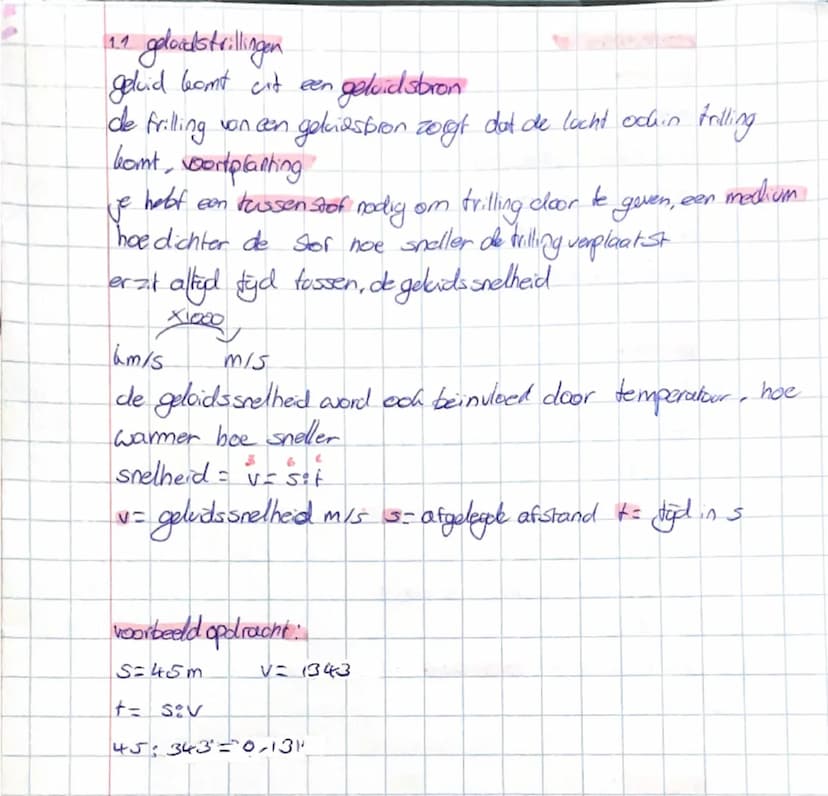 1.1 geluidstrillingen
geluid komt uit een geluidsbron
de trilling van een geluidsbron zorgt dat de lucht ook in trilling
komt, voortplanting
je hebt een tussenstof nodig om trilling door te geven, een medium
hoe dichter de stof hoe sneller de trilling verplaatst
er zit altijd tijd tussen, de geluidssnelheid
x1000
km/s m/s
de geluidssnelheid word ook beinvloed door temperatuur, hoe
warmer hoe sneller
snelheid = v = s:t
v= geluidssnelheid m/s s= afgelegde afstand t= tijd in s
voorbeeld opdracht:
s=45m v= 343
t= s:v
45: 343 = 0,131